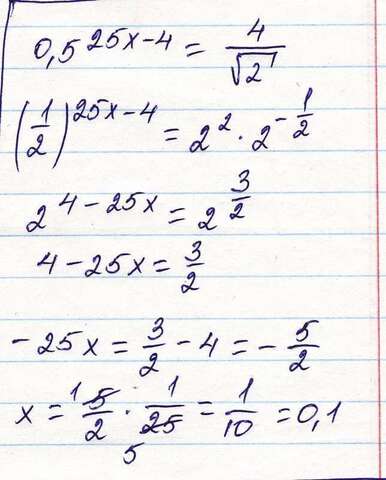 0,5^{25x-4} = \frac{4}{\sqrt{2}}
\left(\frac{1}{2}\right)^{25x-4} = 2^2 \cdot 2^{-\frac{1}{2}}
2^{4-25x} = 2^{\frac{3}{2}}
4-25x = \frac{3}{2}
-25x = \frac{3}{2} - 4 = -\frac{5}{2}
x = \frac{\cancel{5}^1}{2} \cdot \frac{1}{\cancel{25}_5} = \frac{1}{10} = 0,1